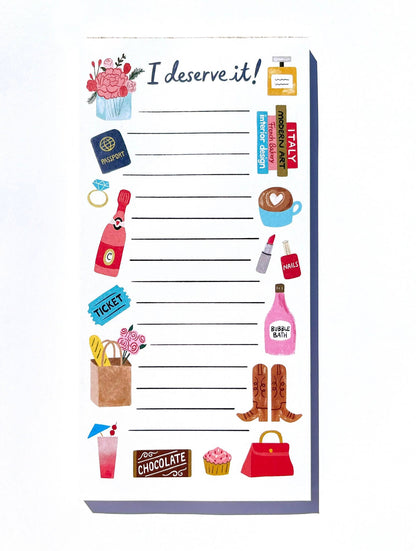 I deserve it!
PASSPORT
interior design
French Bakery
MODERN ART
ITALY
C
NAILS
TICKET
BUBBLE
BATH
CHOCOLATE